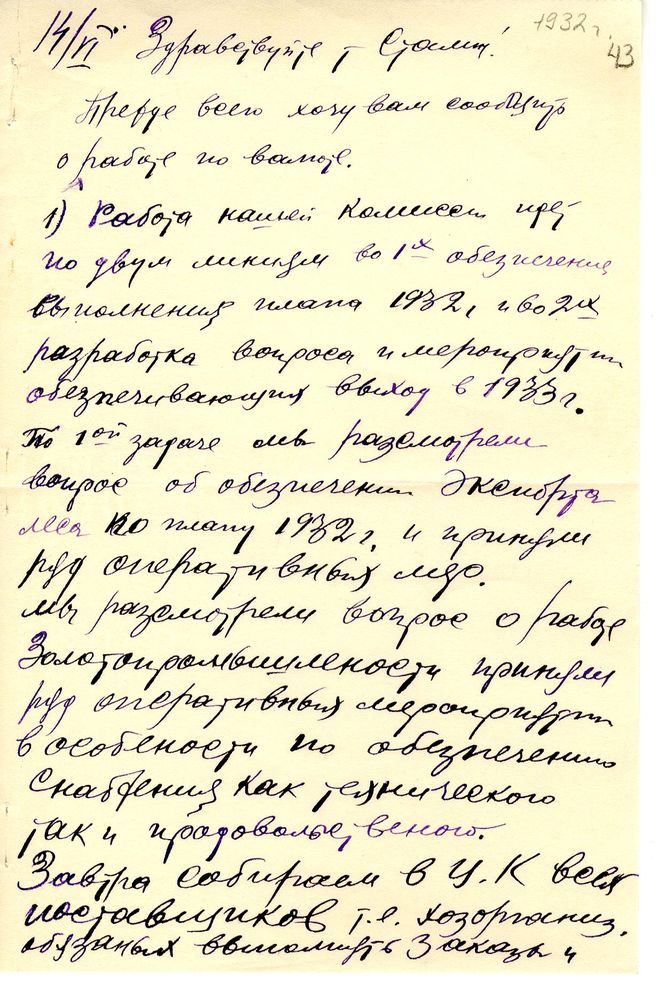 1932 г.
43
14/VI Здравствуйте т Сталин!
Прежде всего хочу вам сообщить
о работе по валюте.
1) Работа нашей комиссии идет
по двум линиям во 1х обезпечения
выполнения плана 1932, и во 2их
разработка вопроса и мероприятии
обезпечивающих выход в 1933 г.
По 1ой задаче мы разсмотрели
вопрос об обезпечении Экспорта
леса по плану 1932 г. и приняли
ряд оперативных мер.
мы разсмотрели вопрос о работе
Золотопромышлености приняли
ряд оперативных мероприятии
в особености по обезпечению
снабжения как технического
так и продовольственого.
Завтра собираем в Ц.К всех
поставщиков т.е. хозорганиз.
обязаных выполнить Заказы и